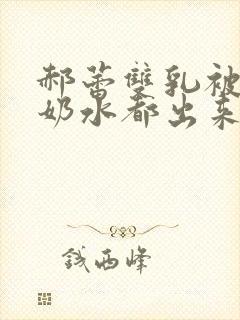 郝蕾雙乳被
奶水都出来
钱西峰